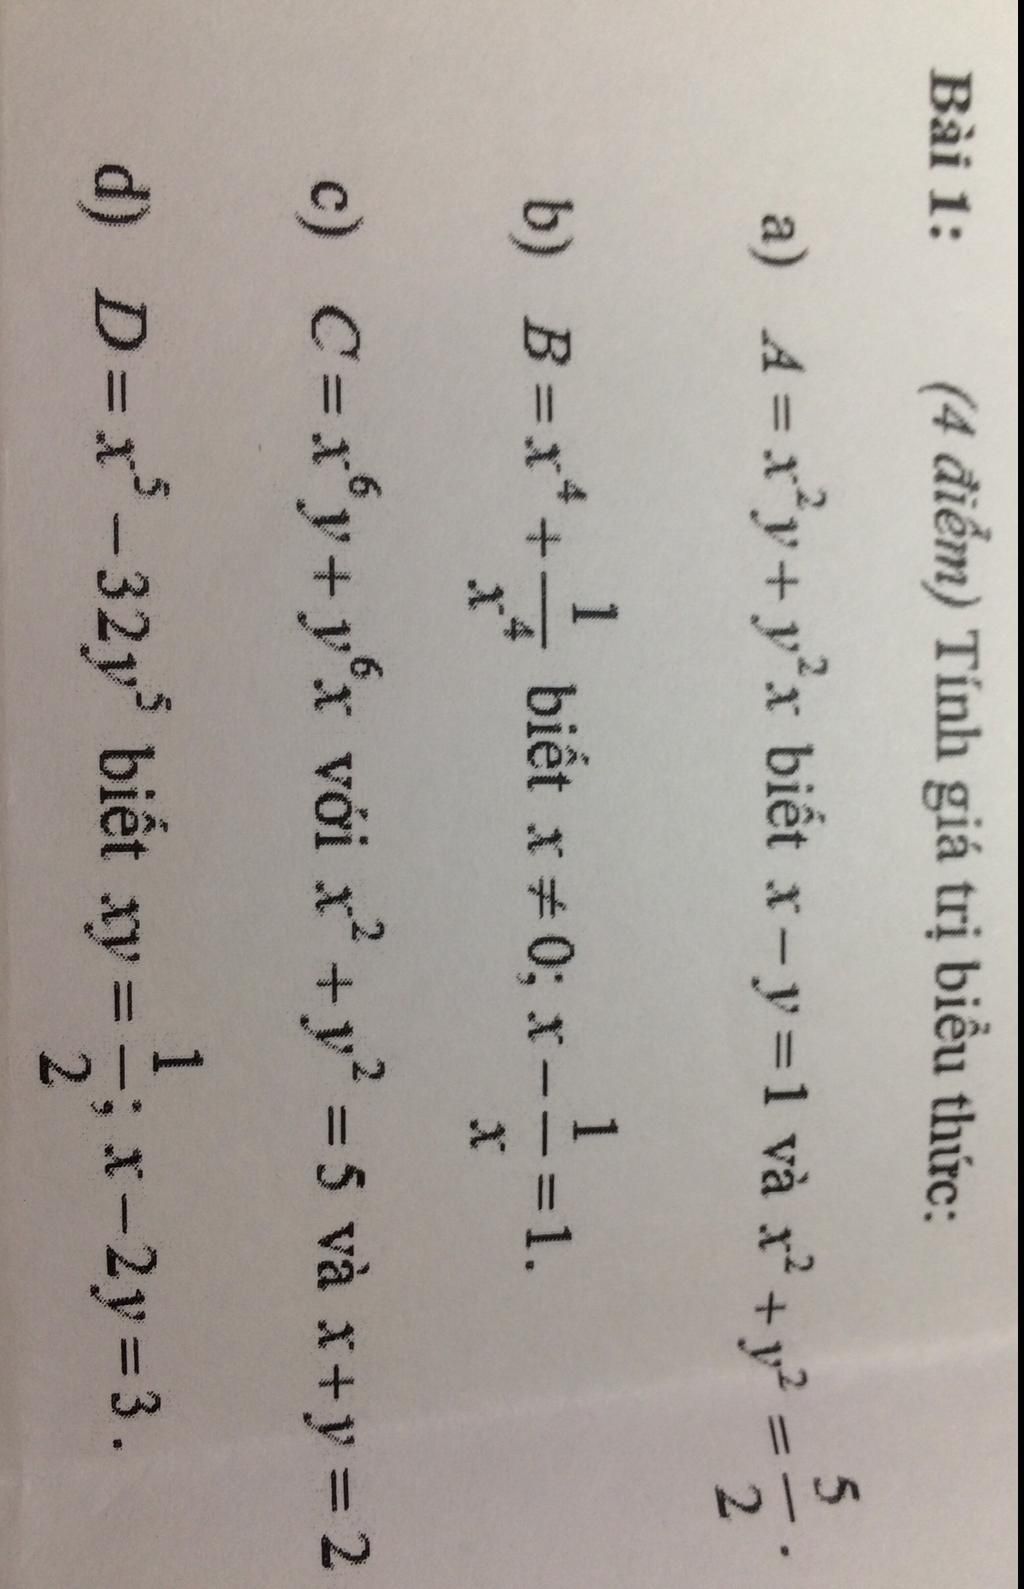 Bài 1: (4 điểm) Tính giá trị biểu thức:
a) A = x²y + y²x biết x − y = 1 và x² + y² = 5/2.
b) B = x⁴ + 1/x⁴ biết x ≠ 0; x − 1/x = 1.
c) C = x⁶y + y⁶x với x² + y² = 5 và x + y = 2
d) D = x⁵ − 32y⁵ biết xy = 1/2; x − 2y = 3.